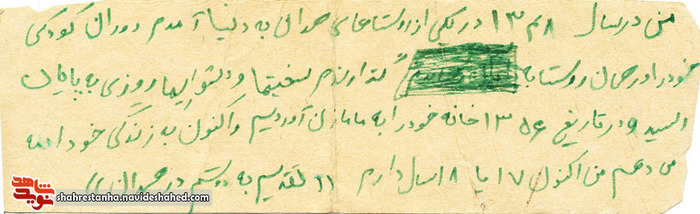 من در سال ۱۳۴۸ در یکی از روستاهای همدان به دنیا آمدم دوران کودکی
خود را در همان روستا به گذراندم سختیها و دشواریها روزی به پایان
رسید و در تاریخ ۱۳۵۶ خانه خود را به مامازن آوردیم و اکنون به زندگی خود ادامه
می دهم من اکنون ۱۷ یا ۱۸ سال دارم (( تقدیم به دوستم در همدان ))
شاهد
نوید
shahrestanha.navideshahed.com